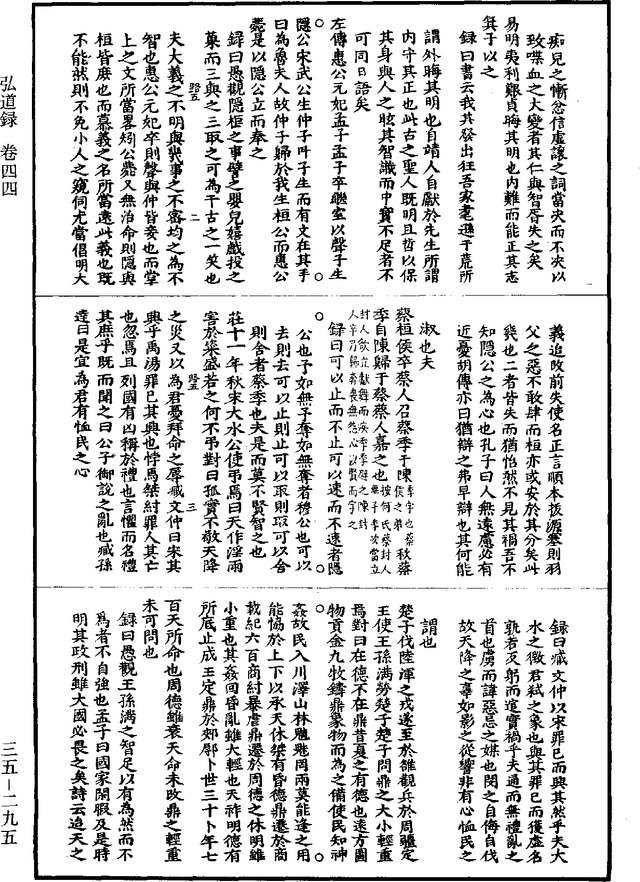 弘道録　卷四四
三五—二九五
痴兒之慚忿信虛讓之詞當决而不决以
致喋血之大變者其仁與智胥失之矣
易明夷利艱貞晦其明也内難而能正其志
箕子以之
録曰書云我其發出狂吾家耄遜于荒所
謂外晦其明也自靖人自獻於先生所謂
内守其正也此古之聖人既明且哲以保
其身與人之眩其智識而中實不足者不
可同日語矣
左傳惠公元妃孟子孟子卒繼室以聲子生
隱公宋武公生仲子仲子生而有文在其手
曰為魯夫人故仲子歸於我生桓公而惠公
薨是以隱公立而奉之
録曰愚觀隱桓之事譬之嬰兒嬉戲投之
菓而三與之三取之可為千古之一笑也
夫大義之不明與幾事之不審均之為不
智也惠公元妃卒則聲與仲皆妾也而掌
上之文所當畧矧公薨又無治命則隱與
桓皆庶也而慕義之名所當遠此義也既
不能然則不免小人之窺伺尤當倡明大
義追改前失使名正言順本拔源塞則羽
父之惡不敢肆而桓亦或安於其分矣此
幾也二者皆失而猶怡然不見其禍吾不
知隱公之為心也孔子曰人無遠慮必有
近憂胡傳亦曰猶辯之弗早辯也其何能
淑也夫
蔡桓侯卒蔡人召蔡季于陳
秋蔡
季自陳歸于蔡蔡人嘉之也
録曰可以止而不止可以速而不速者隱
公也予如無予奪如無奪者穆公也可以
去則去可以止則止可以取則取可以舍
則舍者蔡季也夫是而莫不賢智之也
莊十一年秋宋大水公使弔焉曰天作淫雨
害於粢盛若之何不弔對曰孤實不敬天降
之災又以為君憂拜命之辱臧文仲曰宋其
興乎禹湯罪已其興也悖焉桀紂罪人其亡
也忽焉且列國有凶稱於禮也言懼而名禮
其庶乎既而聞之曰公子御說之亂也臧孫
達曰是宜為君有恤民之心
録曰臧文仲以宋罪已而興其然乎夫大
水之徵君弒之象也與其罪已而獲虛名
孰若反躬而遠實禍乎夫通而無禮亂之
首也虜而諱惡忌之媒也閔之自侮自伐
故天降之辜如影之從響非有心恤民之
謂也
楚子伐陸渾之戎遂至於雒觀兵於周疆定
王使王孫滿勞楚子楚子問鼎之大小輕重
焉對曰在德不在鼎昔夏之有德也遠方圖
物貢金九牧鑄鼎象物而為之備使民知神
姦故民入川澤山林魑魅罔兩莫能逢之用
能恊於上下以承天休桀有昏德鼎遷於商
載紀六百商紂暴虐鼎遷於周德之休明雖
小重也其姦回昏亂雖大輕也天祚明德有
所底止成王定鼎於郟鄏卜世三十卜年七
百天所命也周德雖衰天命未改鼎之輕重
未可問也
録曰愚觀王孫滿之智足以有為然而不
為者不自強也孟子曰國家閒暇及是時
明其政刑雖大國必畏之矣詩云迨天之